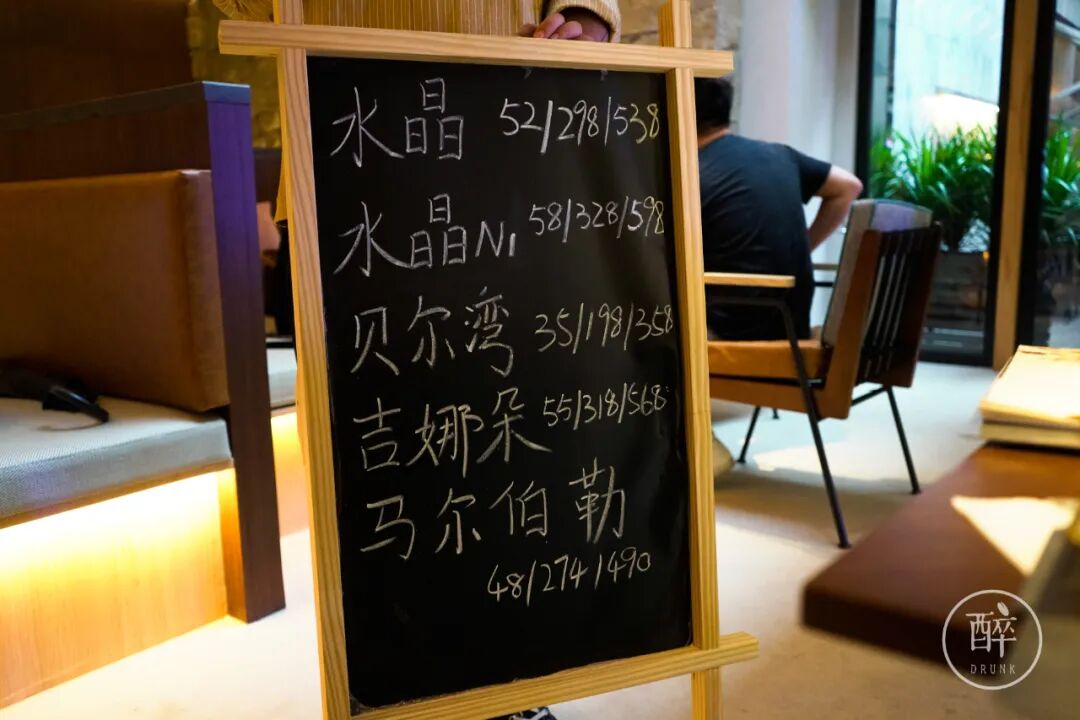 水晶 52/298/538
水晶N1 58/328/598
贝尔湾 35/198/358
吉娜朵 55/318/568
马尔伯勒
48/274/490
醉
DRUNK